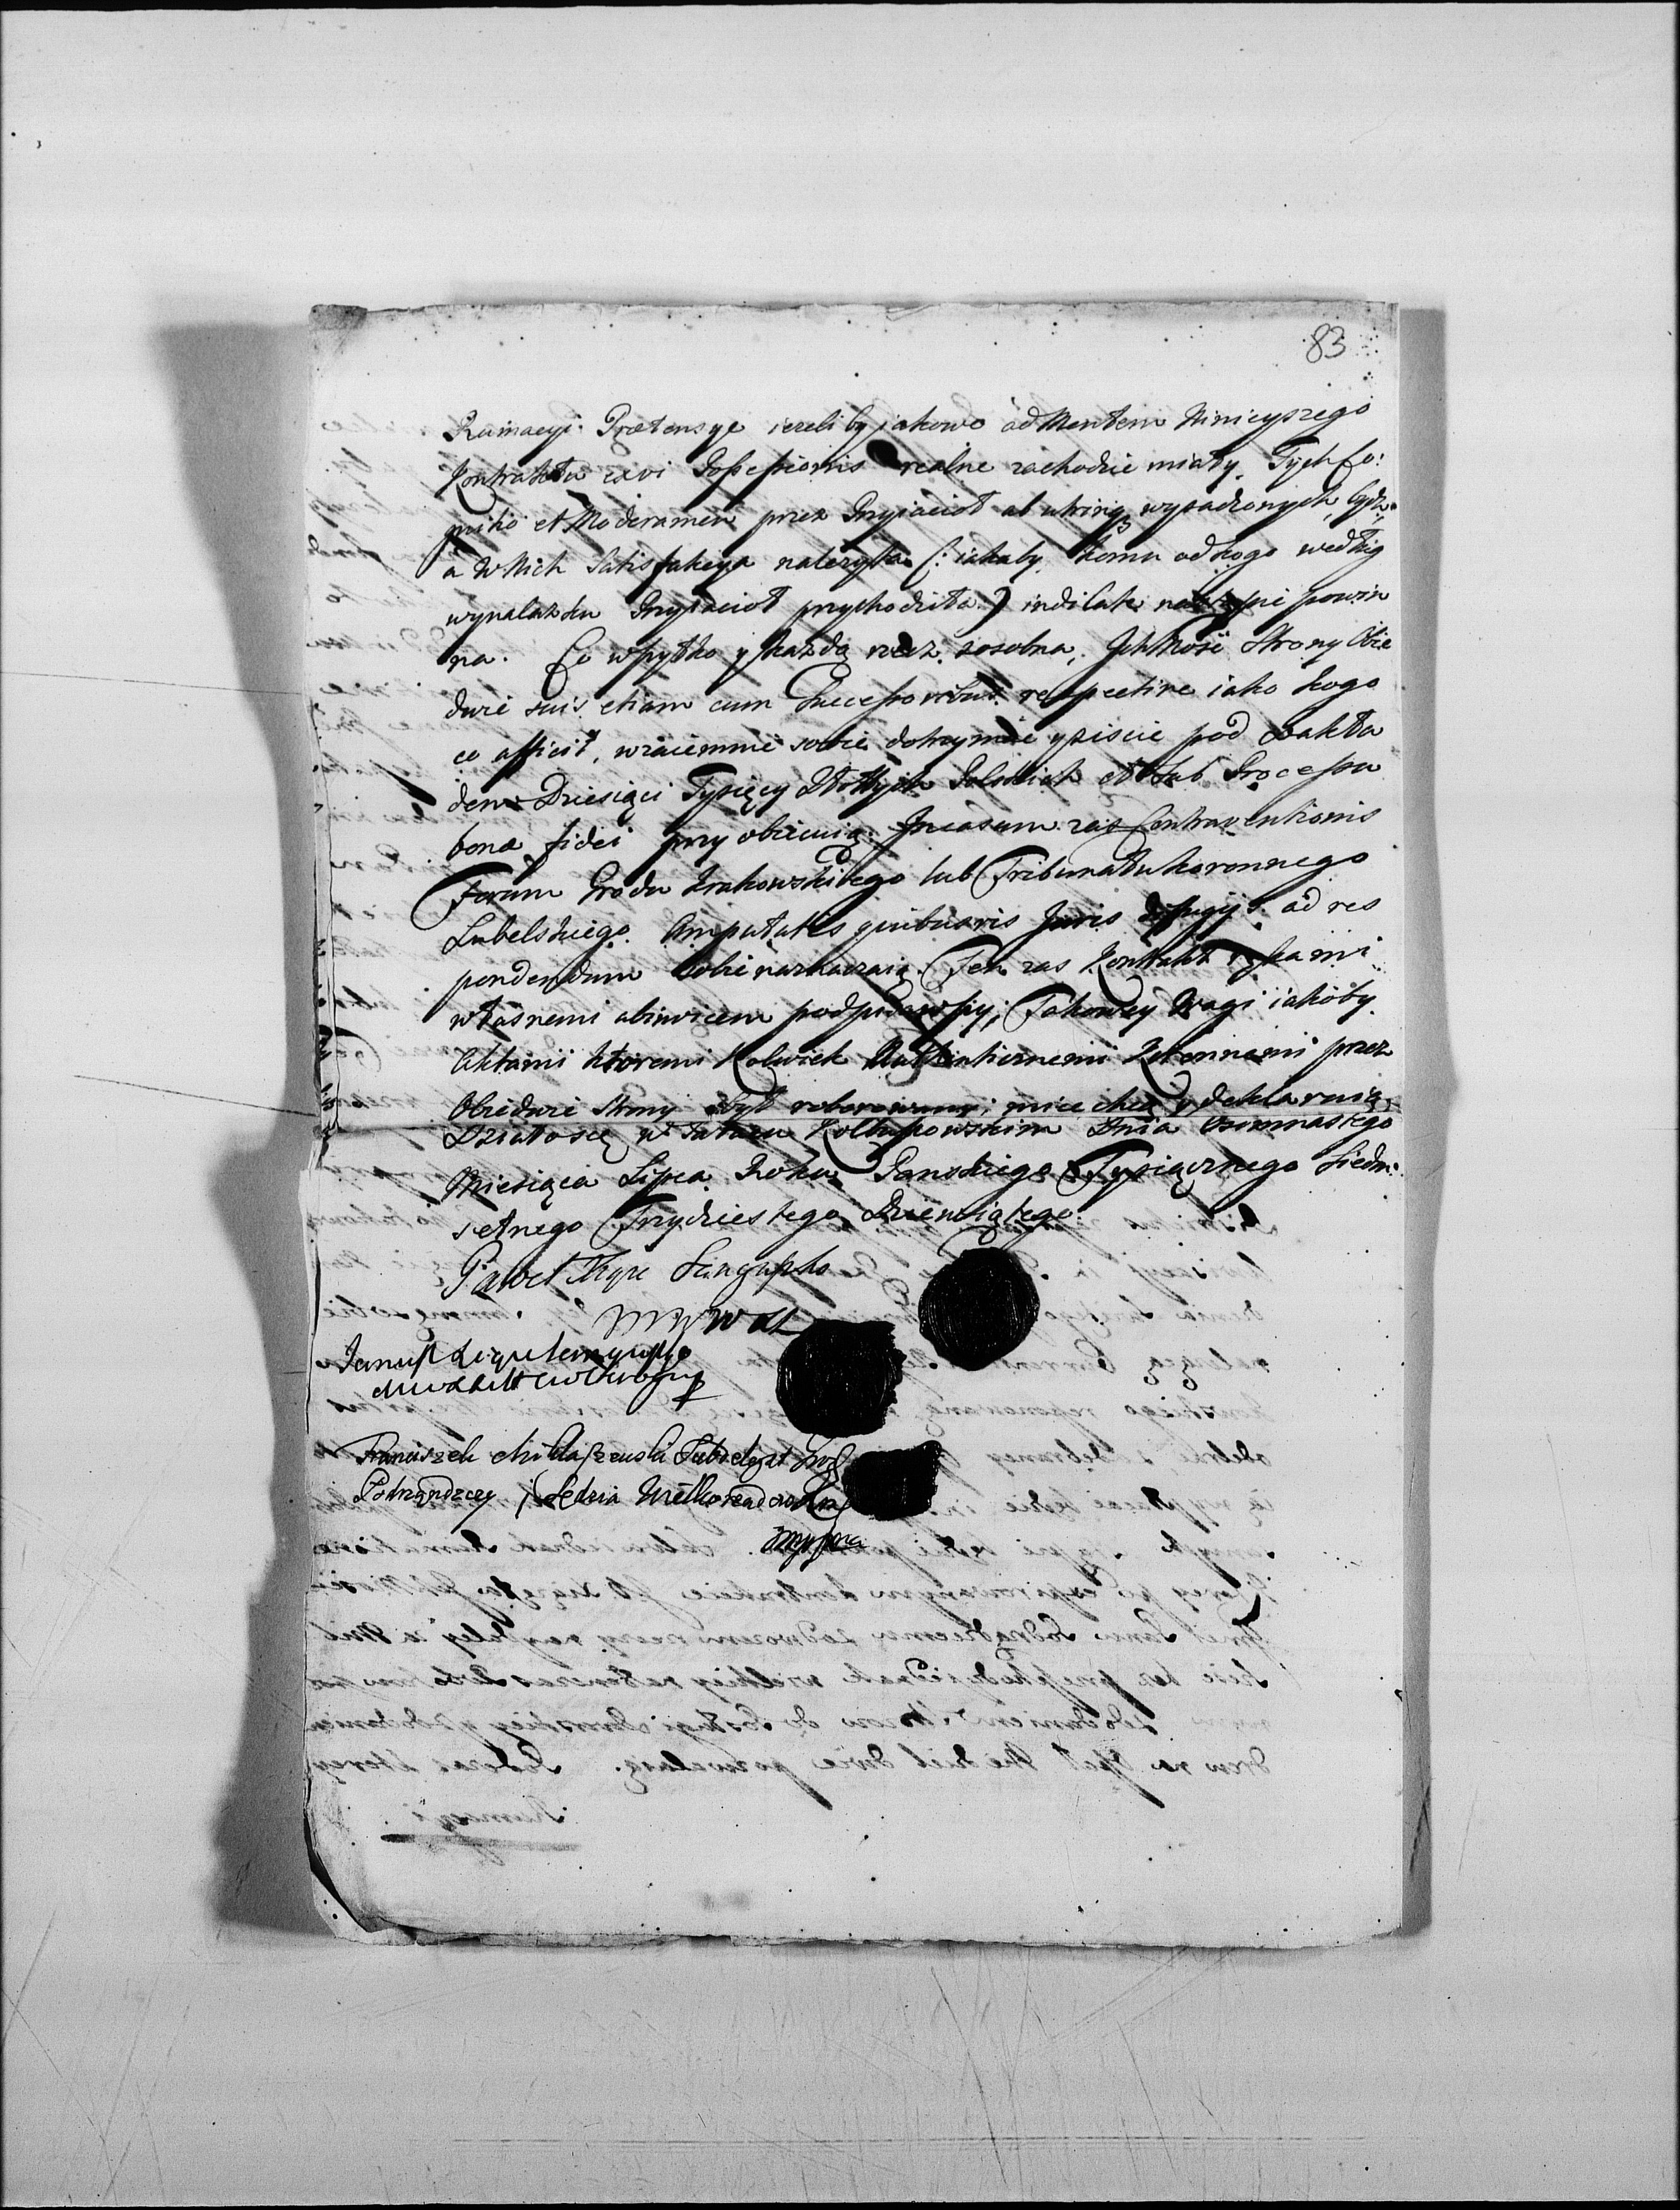 83
Rumacyi. Prætensye iezeliby jakowe ad Mentem Ninieyszego
Kontraktu ex vi Possessionis realne zachodzić miały, Tych Co:
gnitio et Moderamen przez Przyiacioł ab utrinq wysadzonych będz:
a w Nich Satisfakcya należyta (: iakaby komu od kogo według
wynalazku Przyiacioł przychodziła :) indilate powin
na. Co wszytko y każdą rzecz zosobna, Ichmość Strony Obie
dwie suis etiam cum Successoribus respective iako kogo
co afficit, wzaiemnie sobie dotrzymać y ziscić pod Zakła
dem Dziesiąci Tysięcy Złottych Polskich et sub Processu
bonæ fidei przyobiecuią. In casum zaś Contraventionis
Forum Grodu Krakowskiego lub Tribunału Koronnego
Lubelskiego Amputatis quibusvis Juris diffugijs ad res
pondendum sobie naznaczaią. Ten zas Kontrakt rękami
własnemi abinvicem podpisawszy, Takowey Wagi iakoby
Aktami ktoremi kolwiek Authenticznemi Koronnemi przez
Obiedwie Strony był roborowany, mieć chcą y deklaruią,
Działo się w Pałacu Kolbuszowskim Dnia Osmnastego
Miesiąca Lipca Roku Panskiego Tysiącznego Siedm:
setnego Trzydziestego Dziewiątego.
Paweł Xżę Sanguszko
MWWXL
Janusz Xiąze Sanguszko
Franciszek Subdelegat
Podrzędzczy i Sędzia Wielkorządowy
mppria